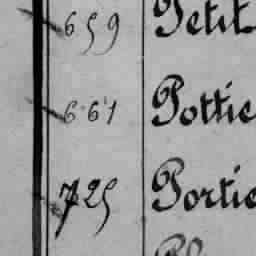 659 Petit
661 Pottie
725 Portie